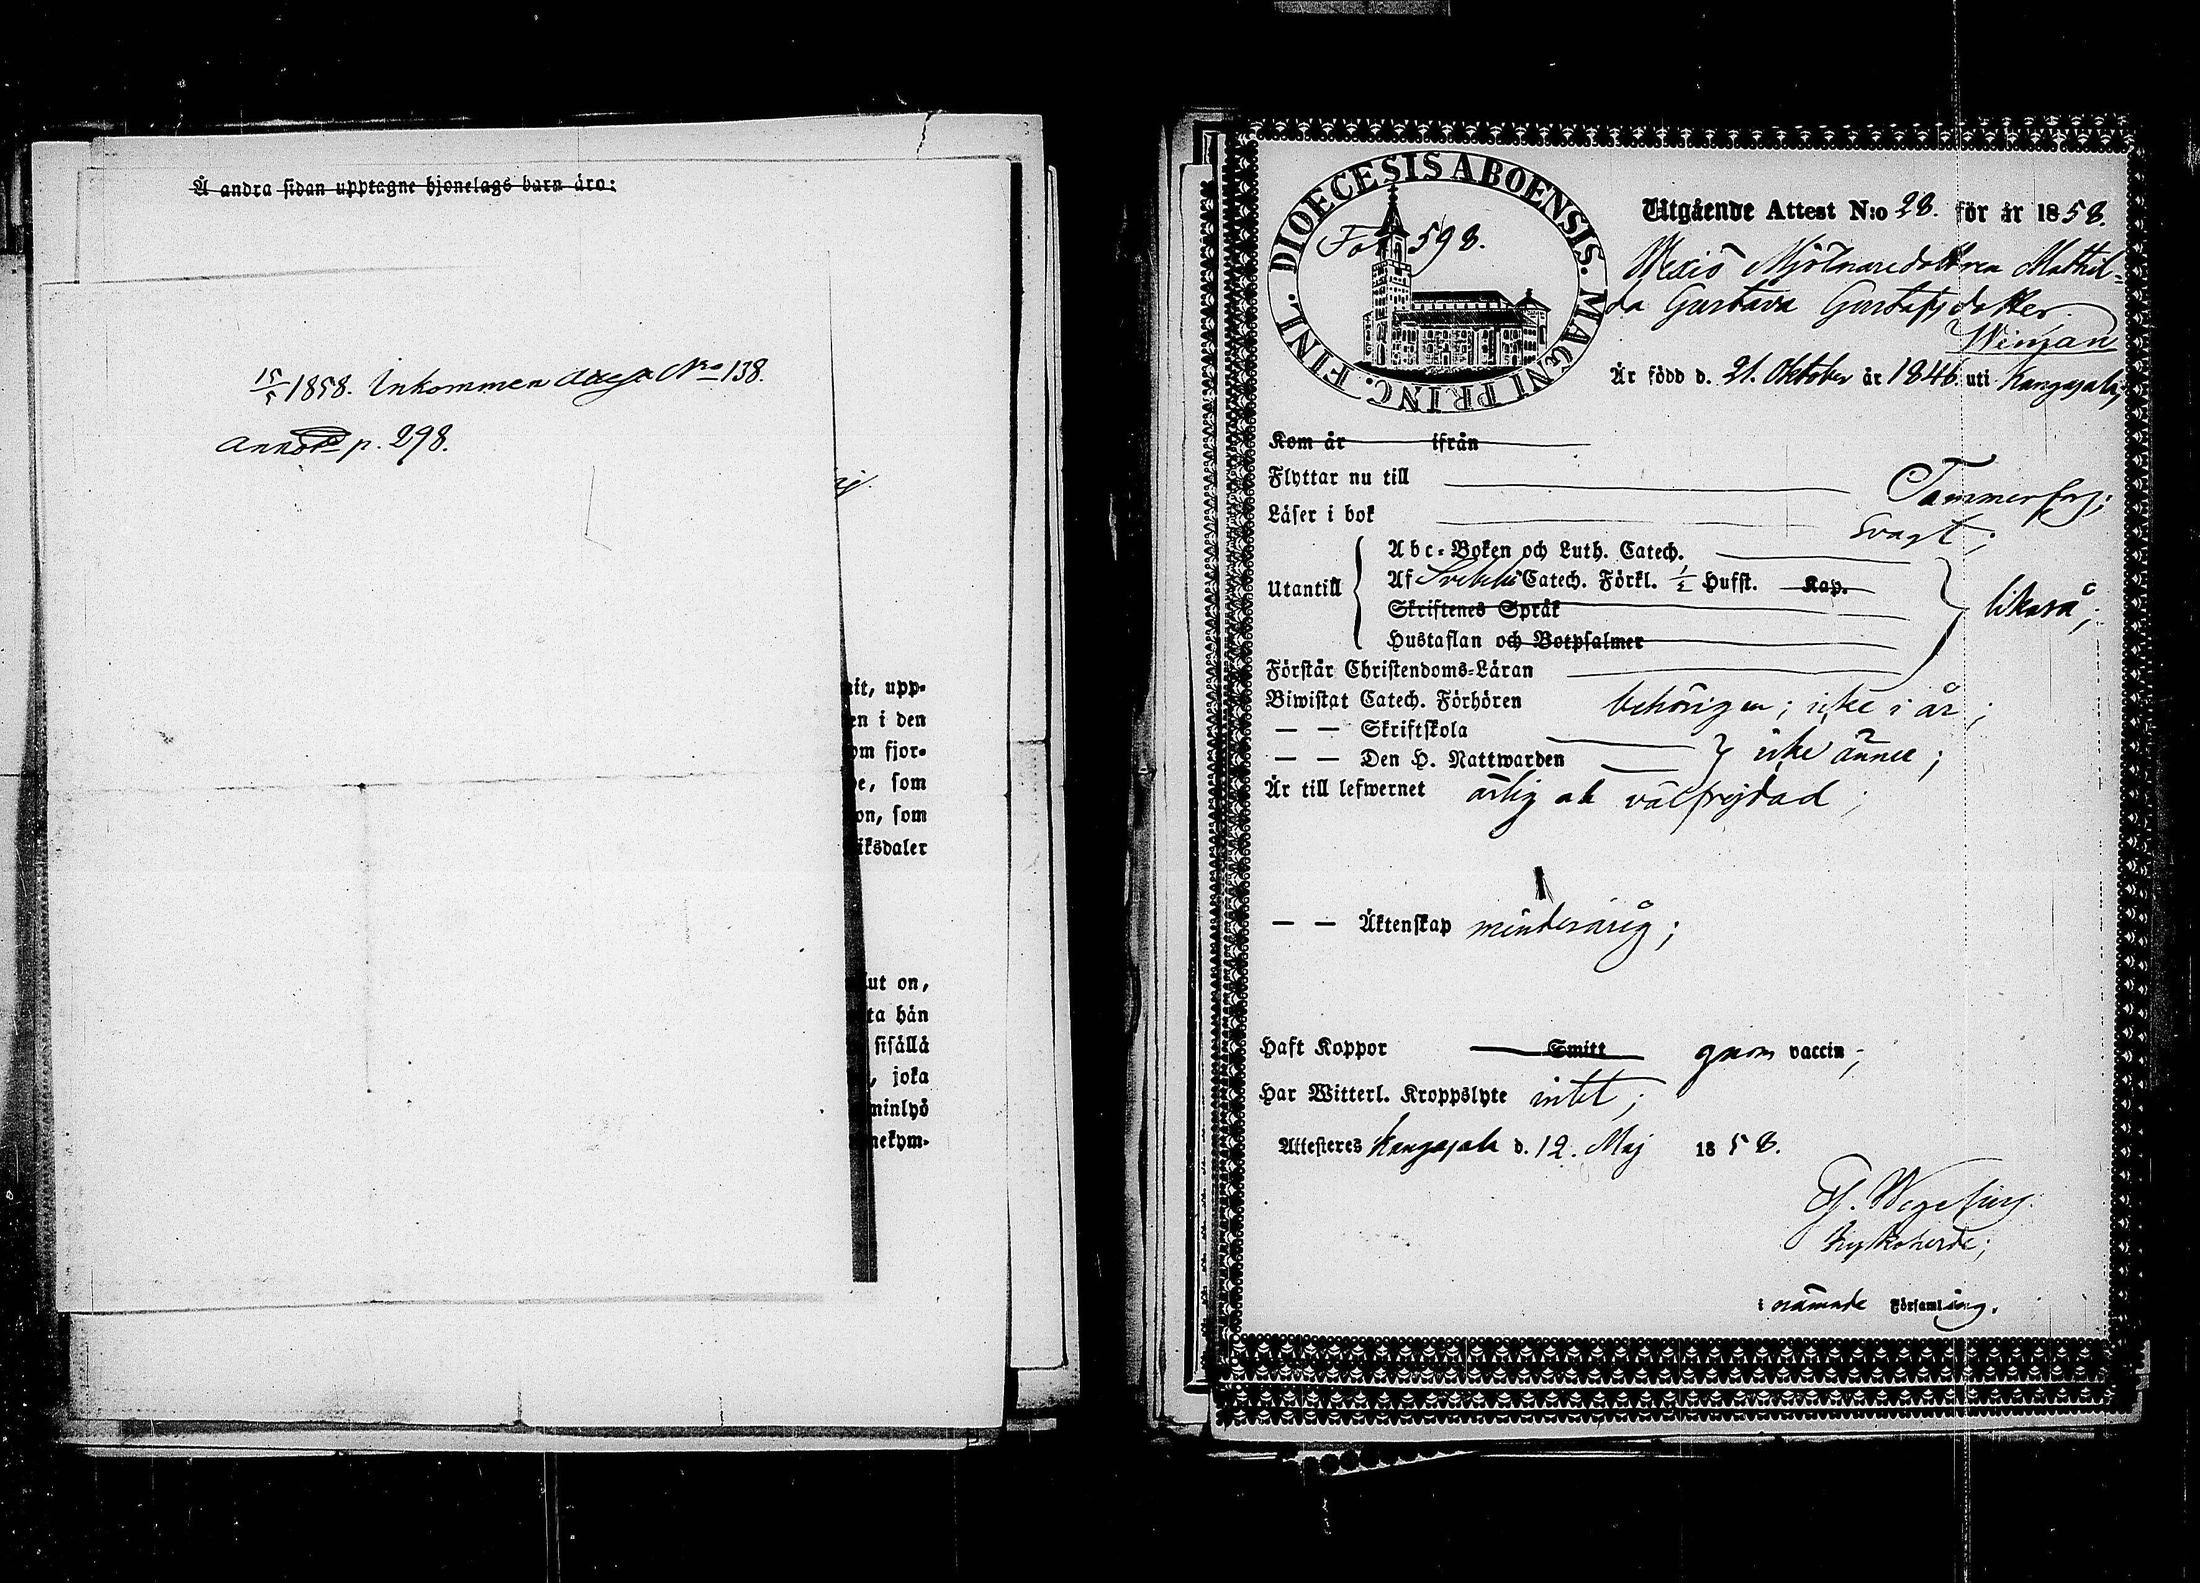 Å andra sidan upptagne hjonelags barn äro:
15/5 1858. Inkommen No 138.
Annot p. 298.
it, upp-
en i den
om fjor-
e, som
on, som
iksdaler
ut on,
ta hän
sisällä
, joka
minlyö
nekym-
DIOECESIS ABOENSIS. MAGNI PRINC. FINL.
Fol 598.
Utgående Attest N:o 28. för år 1858.
Wexiö Mjölnaredottren Mathil-
da Gustava Gustafsdotter
Wiman
Är född d. 21. Oktober år 1846 uti Kangasala;
Kom år ifrån
Flyttar nu till Tammerfors;
Läser i bok svagt;
Utantill
Abc-Boken och Luth. Catech.
Af Svebelii Catech. Förkl. 1/2 Hufst. Kap.
Skriftenes Språk
Hustaflan och Botpsalmer
likaså;
Förstår Christendoms-Läran
Biwistat Catech. Förhören behörigen; icke i år;
— — Skriftskola
— — Den H. Nattwarden icke ännu;
Är till lefwernet ärlig och välfrejdad;
— — Äktenskap minderårig;
Haft Koppor Smitt genom vaccin;
Har Witterl. Kroppslyte intet;
Attesteres Kangasala d. 12. Maj 1858.
Wegelius.
Kyrkoherde;
i nämnde Församling.